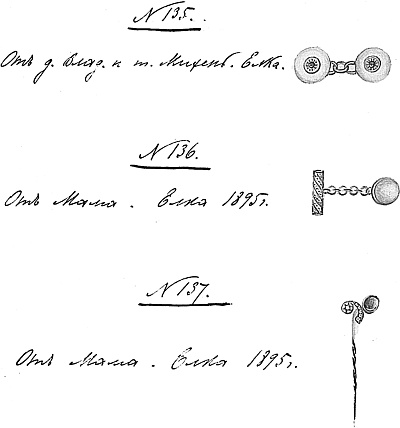 N 135.
Отъ д. Влад. и т. Михень. Елка.
N 136.
Отъ Мама. Елка 1895 г.
N 137.
Отъ Мама. Елка 1895 г.